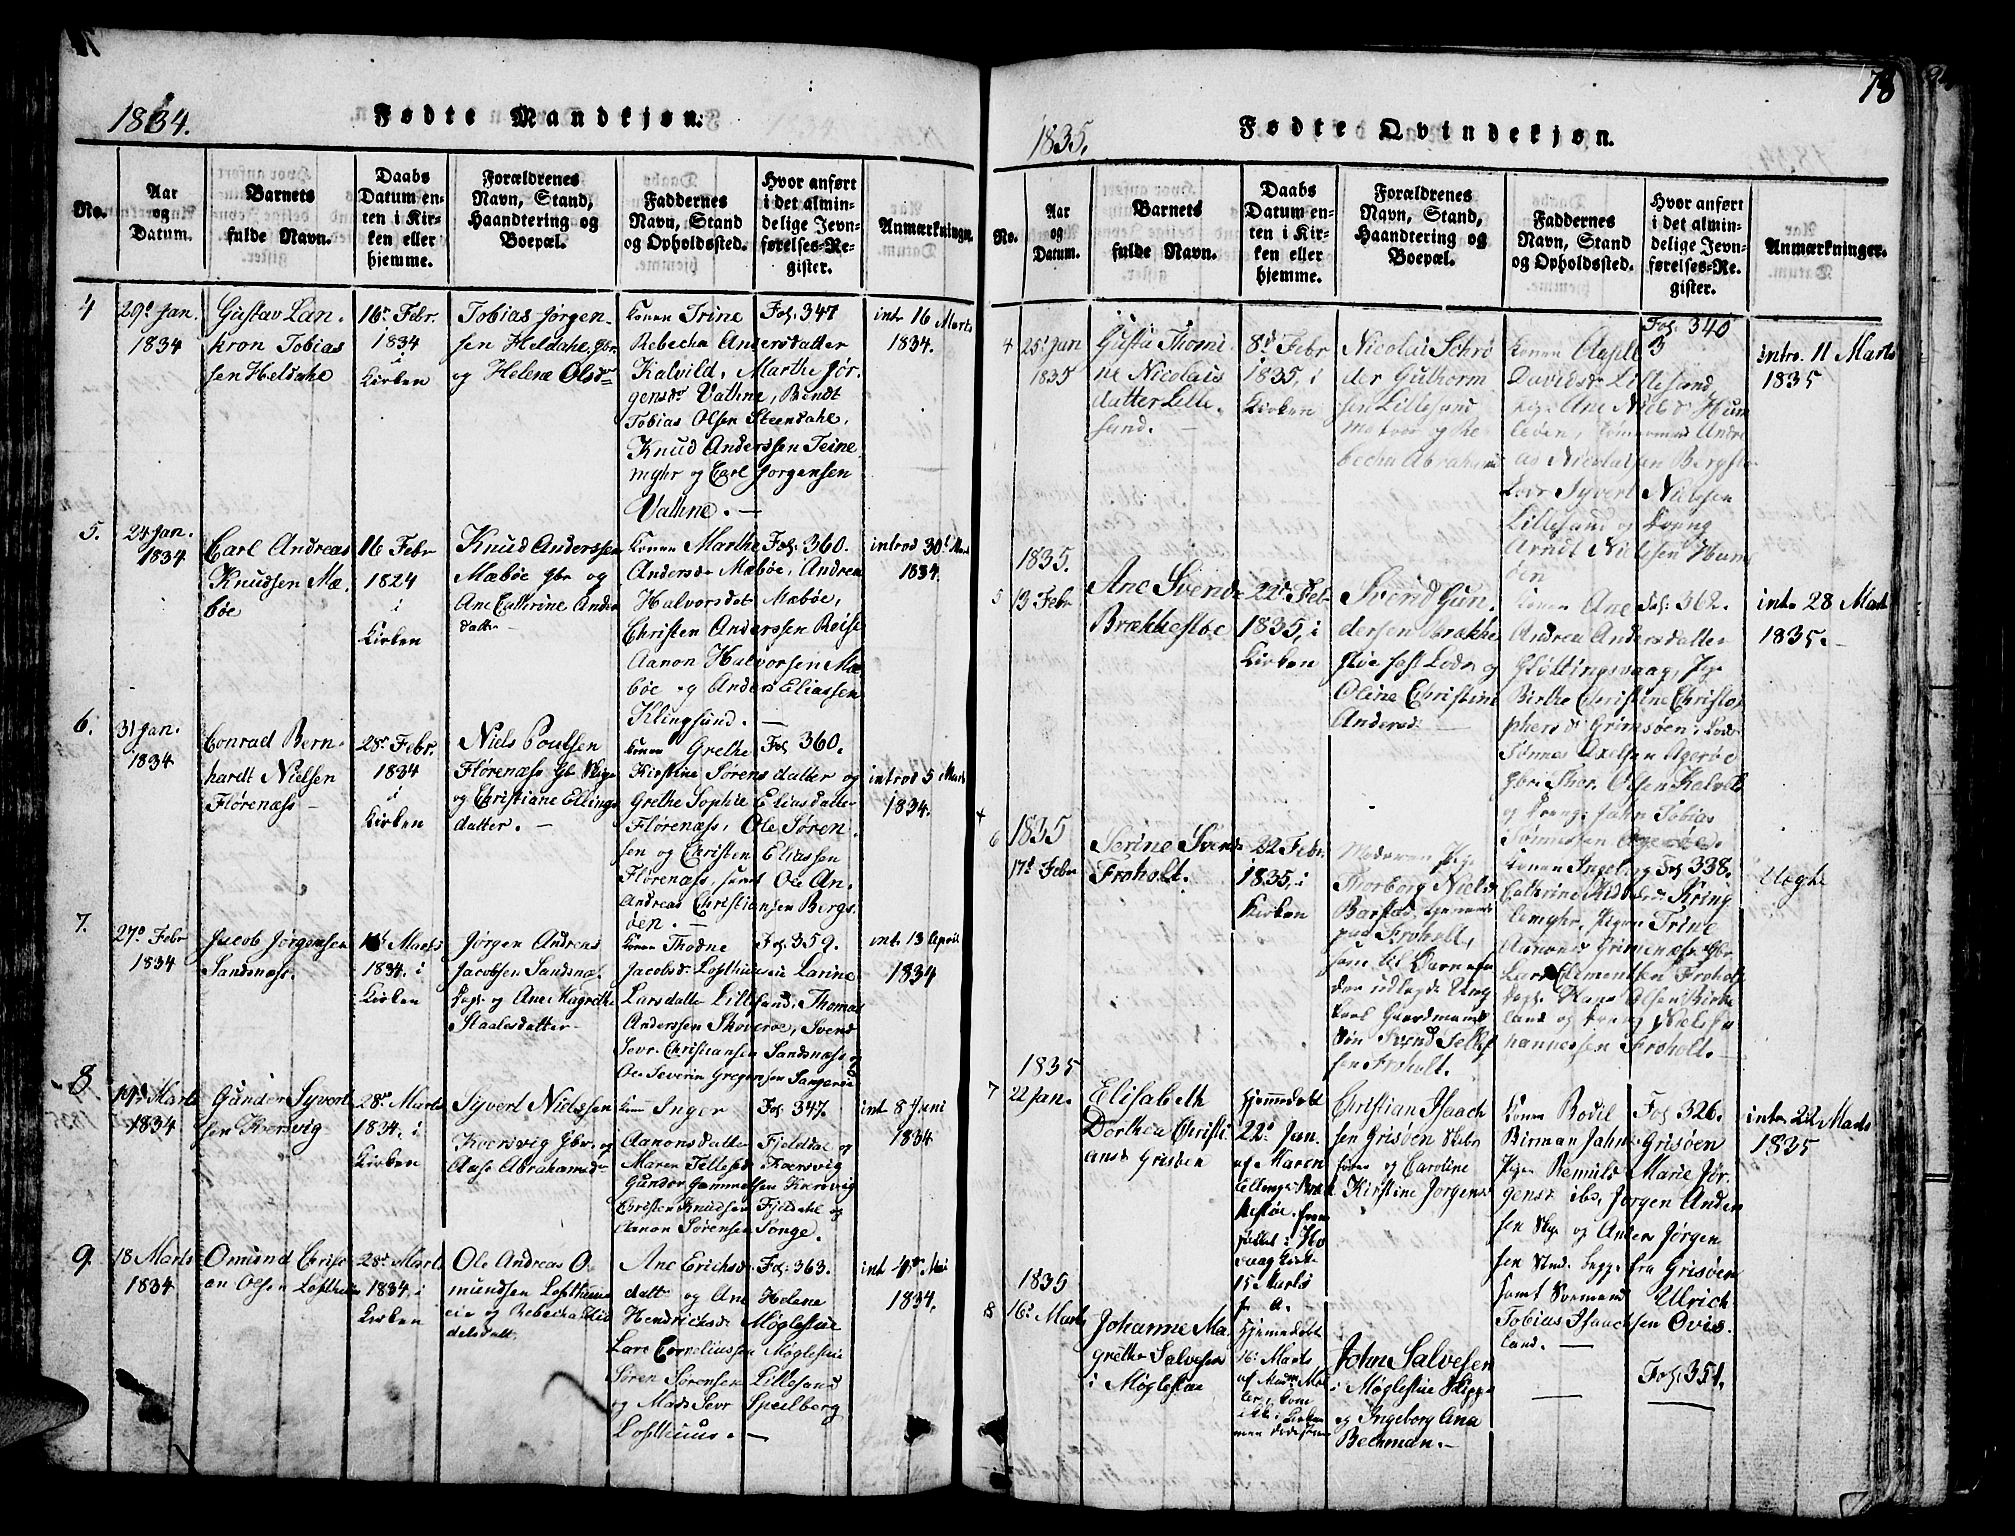 1834.
Fødte Mandkjøn.
No.
Aar
og
Datum.
Barnets
fulde Navn.
Daabs
Datum en-
ten i Kir-
ken eller
hjemme.
Forældrenes
Navn, Stand,
Haandtering og
Boepæl.
Faddernes
Navn, Stand
og Opholdssted.
Hvor anført
i det almin-
delige Jevn-
førelses-Re-
gister.
Anmærkninger.
4
29d Jan.
1834
Gustav Lan-
kron Tobias
sen Heldahl
16d Febr.
1834
i
Kirken
Tobias Jørgen-
sen Heldahl, Gbr.
og Helene Olsdr
Konen Trine
Rebecha Andersdatter
Kalvild, Marthe Jør-
gensdr Vathne, Bendt
Tobias Olsen Steendahl,
Knud Anderssen Teine
myhr og Carl Jørgensen
Vathne. —
Fol. 347
intr 16 Marts
1834.
5.
24 Jan.
1834
Carl Andreas
Knudsen Mæ-
bøe
16 Febr
1824
i
Kirken
Knud Anderssen
Mæbøe Gbr og
Ane Cathrine Ander
datter
Konen Marthe
Andersdr Mæbøe, Andrea
Halvorsdat Mæbøe,
Christen Anderssen Roise
Aanon Halvorsen Mæ
bøe og Anders Eliassen
Klingsund. —
Fol. 360.
introd 30d Marts
1834.
6.
31 Jan.
1834
Conrad Bern-
hardt Nielsen
Flørenæss —
28d Febr.
1834
i
Kirken
Niels Poulsen
Flørenæss Gb
og Christiane Ellings
datter. —
Konen Grethe
Kirstine Sørensdatter og
Grethe Sophie Eliasdatter
Flørenæss, Ole Søren-
sen og Christen Eliassen
Flørenæss, samt Ole An-
dreas Christiansen Bergs
øen. —
Fol 360.
introd 5 Marts
1834.
7.
27d Febr
1834
Jacob Jørgensen
Sandsnæss.
Marts
1834, i
Kirken
Jørgen Andreas
Jacobsen Sandsnæs
og Ane Magrethe
Staalesdatter
Konen Thodne
Jacobsdr Lofthuuseie Larine
Larsdatter Lillesand, Thomas
Anderssen Skoverøe, Svend
Sevr. Christiansen Sandsnæss og
Ole Severin Gregersen Sangerøe
Fol. 359.
int. 13 April
1834
8
19d Marts
1834
Gunder Syvert
sen Kiørsvig
28d Marts
1834, i
Kirken
Syvert Nielssen
Kiørsvig Gbr. og
Aase Abrahamsdr
Konen Inger
Aanonsdatter Fjeldal og
Maren Tellefsdr Kiørsvig
Gunder Gammelsen Kiørsvig
Christen Knudsen Fjeldahl og
Aanon Sørensen Songe.
Fol. 347.
int 8d Juni
1834
9.
18 Marts
1834
Omund Christi-
an Olsen Lofthuus
28d Marts
1834, i
Kirken
Ole Andreas O-
mundsen Lofthuus
eie og Rebecha
delsdatt.
Ane Erichs
datt og Ane Helene
Hendrichsdr Møglestue
Lars Corneliussen Møglestue
Søren Sørensen Lillesand
og Mads Sevr Speilberg
Lofthuus. —
Fol. 363.
int Mai
1834.
78
1835.
Fødte Qvindekjøn.
No.
Aar
og
Datum.
Barnets
fulde Navn.
Daabs
Datum en-
ten i Kir-
ken eller
hjemme.
Forældrenes
Navn, Stand,
Haandtering og
Boepæl.
Faddernes
Navn, Stand
og Opholdssted.
Hvor anført
i det almin-
delige Jevn-
førelses-Re-
gister.
Anmærkninger.
4
25d Jan
1835
Gusta Thomi
ne Nicolais
datter Lille-
sand. —
8d Febr
1835, i
Kirken
Nicolai Schrø
der Guthorm
sen Lillesand
og Re
becha Abraham
Konen Aasell
Davidsdr Lillesand,
Pige Ane Nielsdr Hum
leøen, Tømermand Andre
as Nicolaisen Bergst
Lods Syvert Nielssen
Lillesand og Dreng
Arndt Nielsen Hum
øen
Fol. 340
intro. 11 Marts
1835
5
1835.
13 Febr
Ane Svendr
Brækkestøe
22d Feb
1835, i
Kirken
Svend Gun-
dersen Brække
støe fast Lods og
Oline Christine
Andersd. —
Konen Ane
Andrea Andersdatter
Gløttingsvaag, Pige
Birthe Christine Christo
phersdr Grimsøen, Lods
Tønnes Axelsen Agerøe
Gbr. Thor Olsen Kalvild
og Dreng John Tobias
Tønnessen Agerøe.
Fol. 362.
intr 28 Marts
1835. —
6
1835
17d Febr
Serine Svends
Froholt.
22 Febr.
1835, i
Kirken
Moderen Pige
Thorborg Nielsdr
Barstad, tjenende
paa Froholt,
som til Barnefa
der udlagde Ung
karl Gaardmands
Søn Svend Tellef
sen Froholt. —
Konen Ingeb
Cathrine Kring
lemyhr, Pigen Trine
Aanonsdr Grimenæs, Gbr.
Lars Clementsen Froholt
Hans Olsen Birke
land og Dreng Niels Jo
hannessen Froholt. —
Fol. 338.
Uægte
7
1835
22 Jan.
Elisabeth
Dorthea Christi
ansdr Grisøen
Hjemmedøbt
22d Jan.
af Karen
Ellings Bræk
kestøe, frem
stillet i Hø
vaag Kirke
15d Marts
s. A.
Christian Isaach
sen Grisøen
og Caroline
Kirstine Jørgens
Konen Bodil
Birman Jahns Grisøen
Pige Romuld Marie Jør-
gensdr ibd, Jørgen Ander
sen og Anders Jørgen
sen begge fra Grisøen
samt Sømand Ulrich
Tobias Isaachsen Qvis-
land. —
Fol. 326.
intr. 22 Marts
1835
8
1835
16d Marts
Johanne Ma-
grethe Salvesen
i Møglestue
Hjemmedøbt
16 Marts
af Madm Møl
ler, kom
ikke i Kirken
men døde
John Salvesen
i Møglestue Skipper
og Ingeborg Ana
Beckman. —
—
Fol. 351.